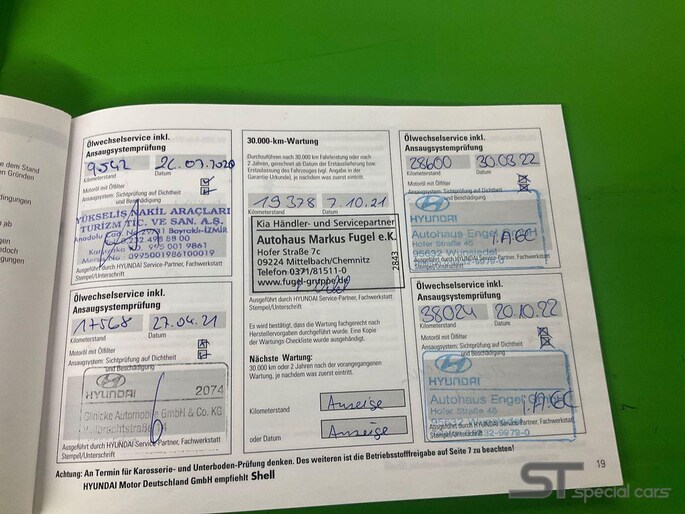 Ölwechselservice inkl.
Ansaugsystemprüfung
9542
26.07.2020
Kilometerstand
Datum
Motoröl mit Ölfilter
Ansaugsystem: Sichtprüfung auf Dichtheit
und Beschädigung
YÜKSELİŞ NAKİL ARAÇLARI
TURİZM TİC. VE SAN. A.Ş.
Bayraklı-İZMİR
0995001986100019
Ausgeführt durch HYUNDAI Service-Partner, Fachwerkstatt
Stempel/Unterschrift
Ölwechselservice inkl.
Ansaugsystemprüfung
17568
27.04.21
Kilometerstand
Datum
Motoröl mit Ölfilter
Ansaugsystem: Sichtprüfung auf Dichtheit
und Beschädigung
HYUNDAI
2074
Glinicke Automobile GmbH & Co. KG
Ausgeführt durch HYUNDAI Service-Partner, Fachwerkstatt
Stempel/Unterschrift
30.000-km-Wartung
Durchzuführen nach 30.000 km Fahrleistung oder nach
2 Jahren, gerechnet ab Datum der Erstauslieferung bzw.
Erstzulassung des Fahrzeuges (vgl. Angabe in der
Garantie-Urkunde), je nachdem was zuerst eintritt.
19378
7.10.21
Kia Händler- und Servicepartner
Autohaus Markus Fugel e.K.
Hofer Straße 7c
09224 Mittelbach/Chemnitz
Telefon 0371/81511-0
www.fugel-gruppe.de
2843
Ausgeführt durch HYUNDAI Service-Partner, Fachwerkstatt
Stempel/Unterschrift
Es wird bestätigt, dass die Wartung fachgerecht nach
Herstellervorgaben durchgeführt wurde. Eine Kopie
der Wartungs-Checkliste wurde ausgehändigt.
Nächste Wartung:
30.000 km oder 2 Jahre nach der vorangegangenen
Wartung, je nachdem was zuerst eintritt.
Kilometerstand
Anzeige
oder Datum
Anzeige
Ölwechselservice inkl.
Ansaugsystemprüfung
28600
30.03.22
Kilometerstand
Datum
Motoröl mit Ölfilter
Ansaugsystem: Sichtprüfung auf Dichtheit
und Beschädigung
HYUNDAI
Autohaus Engel
Hofer Straße 45
95632 Wunsiedel
Ausgeführt durch HYUNDAI Service-Partner, Fachwerkstatt
Stempel/Unterschrift
Ölwechselservice inkl.
Ansaugsystemprüfung
38024
20.10.22
Kilometerstand
Datum
Motoröl mit Ölfilter
Ansaugsystem: Sichtprüfung auf Dichtheit
und Beschädigung
HYUNDAI
Autohaus Engel GmbH
Hofer Straße 45
Ausgeführt durch HYUNDAI Service-Partner, Fachwerkstatt
Stempel/Unterschrift
Achtung: An Termin für Karosserie- und Unterboden-Prüfung denken. Des weiteren ist die Betriebsstofffreigabe auf Seite 7 zu beachten!
HYUNDAI Motor Deutschland GmbH empfiehlt Shell
19
ST special cars